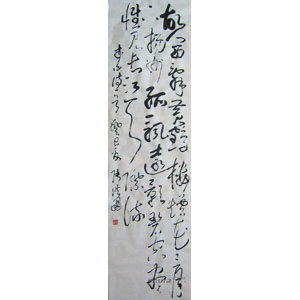 故人西辞黄鹤楼烟花三月
下扬州孤帆远影碧空尽
惟见长江天际流
李白诗 癸巳